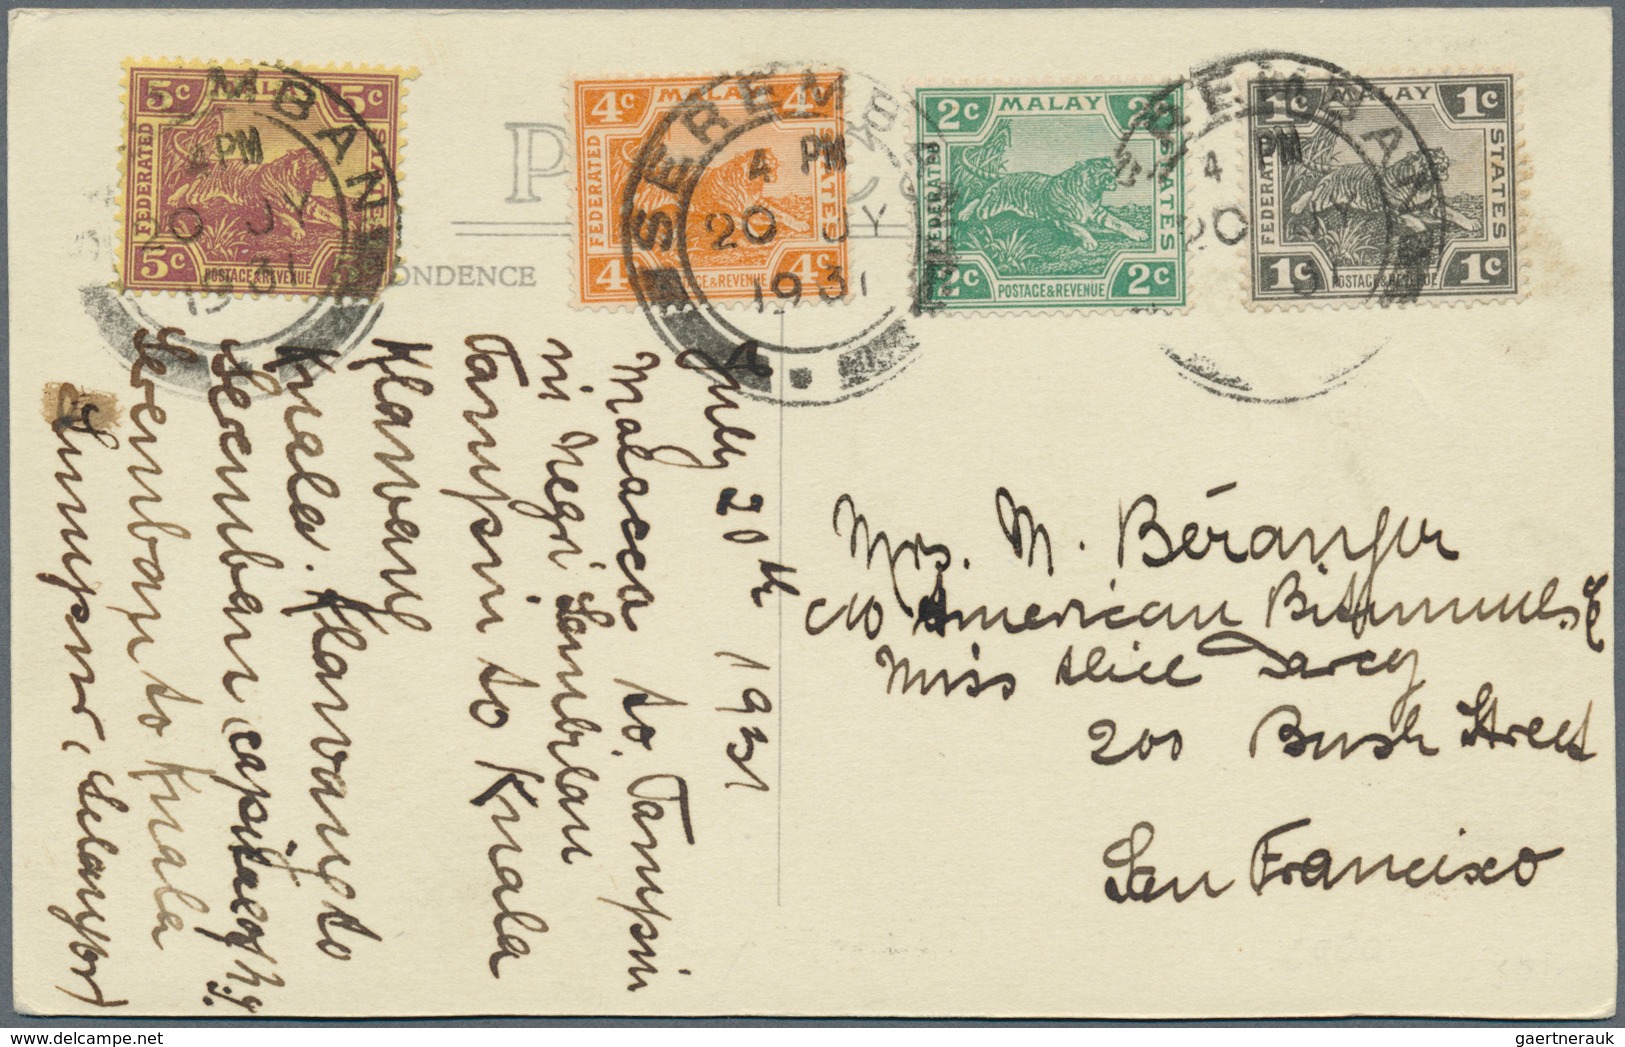 5c MALAY 5c
FEDERATED STATES
5c POSTAGE & REVENUE 5c
MBAN
4 PM
20 JY
1931
4c MALAY 4c
FEDERATED
4c POSTAGE & REVENUE 4c
SEREMBAN
4 PM
20 JY
1931
2c MALAY 2c
FEDERATED STATES
2c POSTAGE & REVENUE 2c
1c MALAY 1c
FEDERATED STATES
1c POSTAGE & REVENUE 1c
REMBAN
4 PM
20 JY
P C
NDENCE
July 20th 1931
Malacca to Tampin
in Negri Sembilan
Tampin to Kuala
Klawang
Kuala Klawang to
Seremban capital of N.S.
Seremban to Kuala
Lumpur, Selangor
Mrs. M. Béranger
c/o American Bitumuls
Miss Alice Darcy
200 Bush Street
San Francisco
gaertnerauk